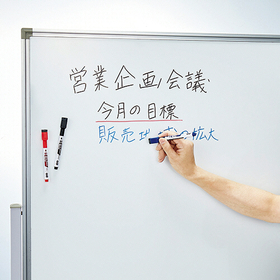 営業企画会議
今月の目標
販売 拡大